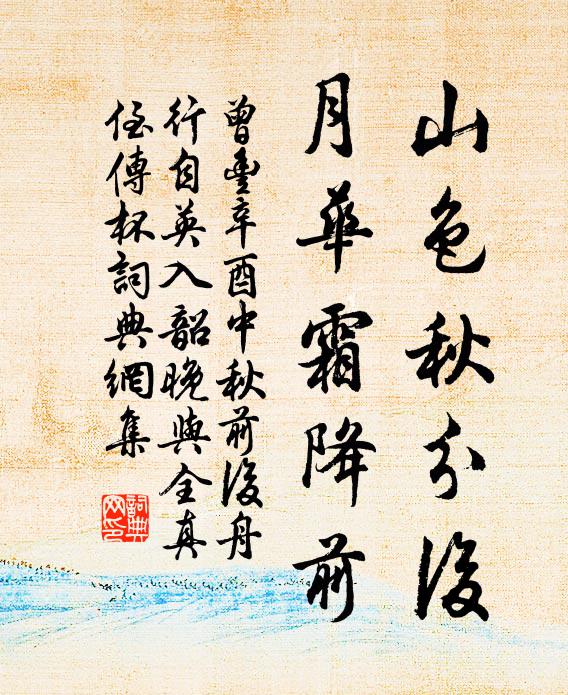 山色秋分後
月華霜降前
曾豐辛酉中秋前後舟
行自英入韶晚與全真
侄傳杯詞典網集
詞典
网印